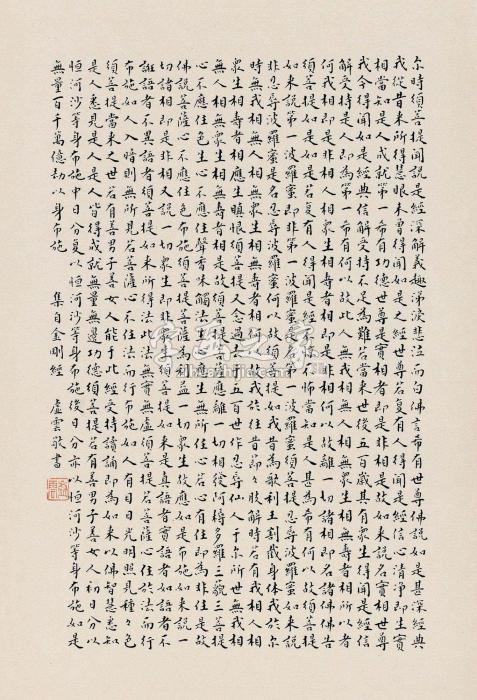 尔時須菩提聞說是經深解義趣涕淚悲泣而白佛言希有世尊佛說如是甚深經典
我從昔來所得慧眼未曾得聞如是之經世尊若復有人得聞是經信心清淨即生實
相當知是人成就第一希有功德世尊是實相者即是非相是故如來說名實相世尊
我今得聞如是經典信解受持不足為難若當來世後五百歲其有眾生得聞是經信
解受持是人即為第一希有何以故此人無我相無人相無眾生相無壽者相所以者
何我相即是非相人相眾生相壽者相即是非相何以故離一切諸相即名諸佛佛告
須菩提如是如是若復有人得聞是經不驚不怖當知是人甚為希有何以故須菩提
如來說第一波羅蜜即非第一波羅蜜是名第一波羅蜜須菩提忍辱波羅蜜如來說
非忍辱波羅蜜是名忍辱波羅蜜何以故須菩提如我昔為歌利王割截身體我於尔
時無我相無人相無眾生相無壽者相何以故我於往昔節々肢解時若有我相人相
眾生相壽者相應生瞋恨須菩提又念過去於五百世作忍辱仙人于尔所世無我相
無人相無眾生相無壽者相是故須菩提菩薩應離一切相發阿耨多羅三藐三菩提
心不應住色生心不應住聲香味觸法生心應生無所住心若心有住即為非住是故
佛說菩薩心不應住色布施須菩提菩薩為利益一切眾生故應如是布施如來說一
切諸相即是非相又說一切眾生即非眾生須菩提如來是真語者實語者如語者不
誑語者不異語者須菩提如來所得法此法無實無虛須菩提若菩薩心住於法而行
布施如人入暗則無所見若菩薩心不住法而行布施如人有目日光明照見種々色
須菩提當來之世若有善男子善女人能于此經受持讀誦即為如來以佛智慧悉知
是人悉見是人皆得成就無量無邊功德須菩提若有善男子善女人初日分以
恒河沙等身布施中日分復以恒河沙等身布施後日分亦以恒河沙等身布施如是
無量百千萬億劫以身布施 集自金剛經 虛雲敬書